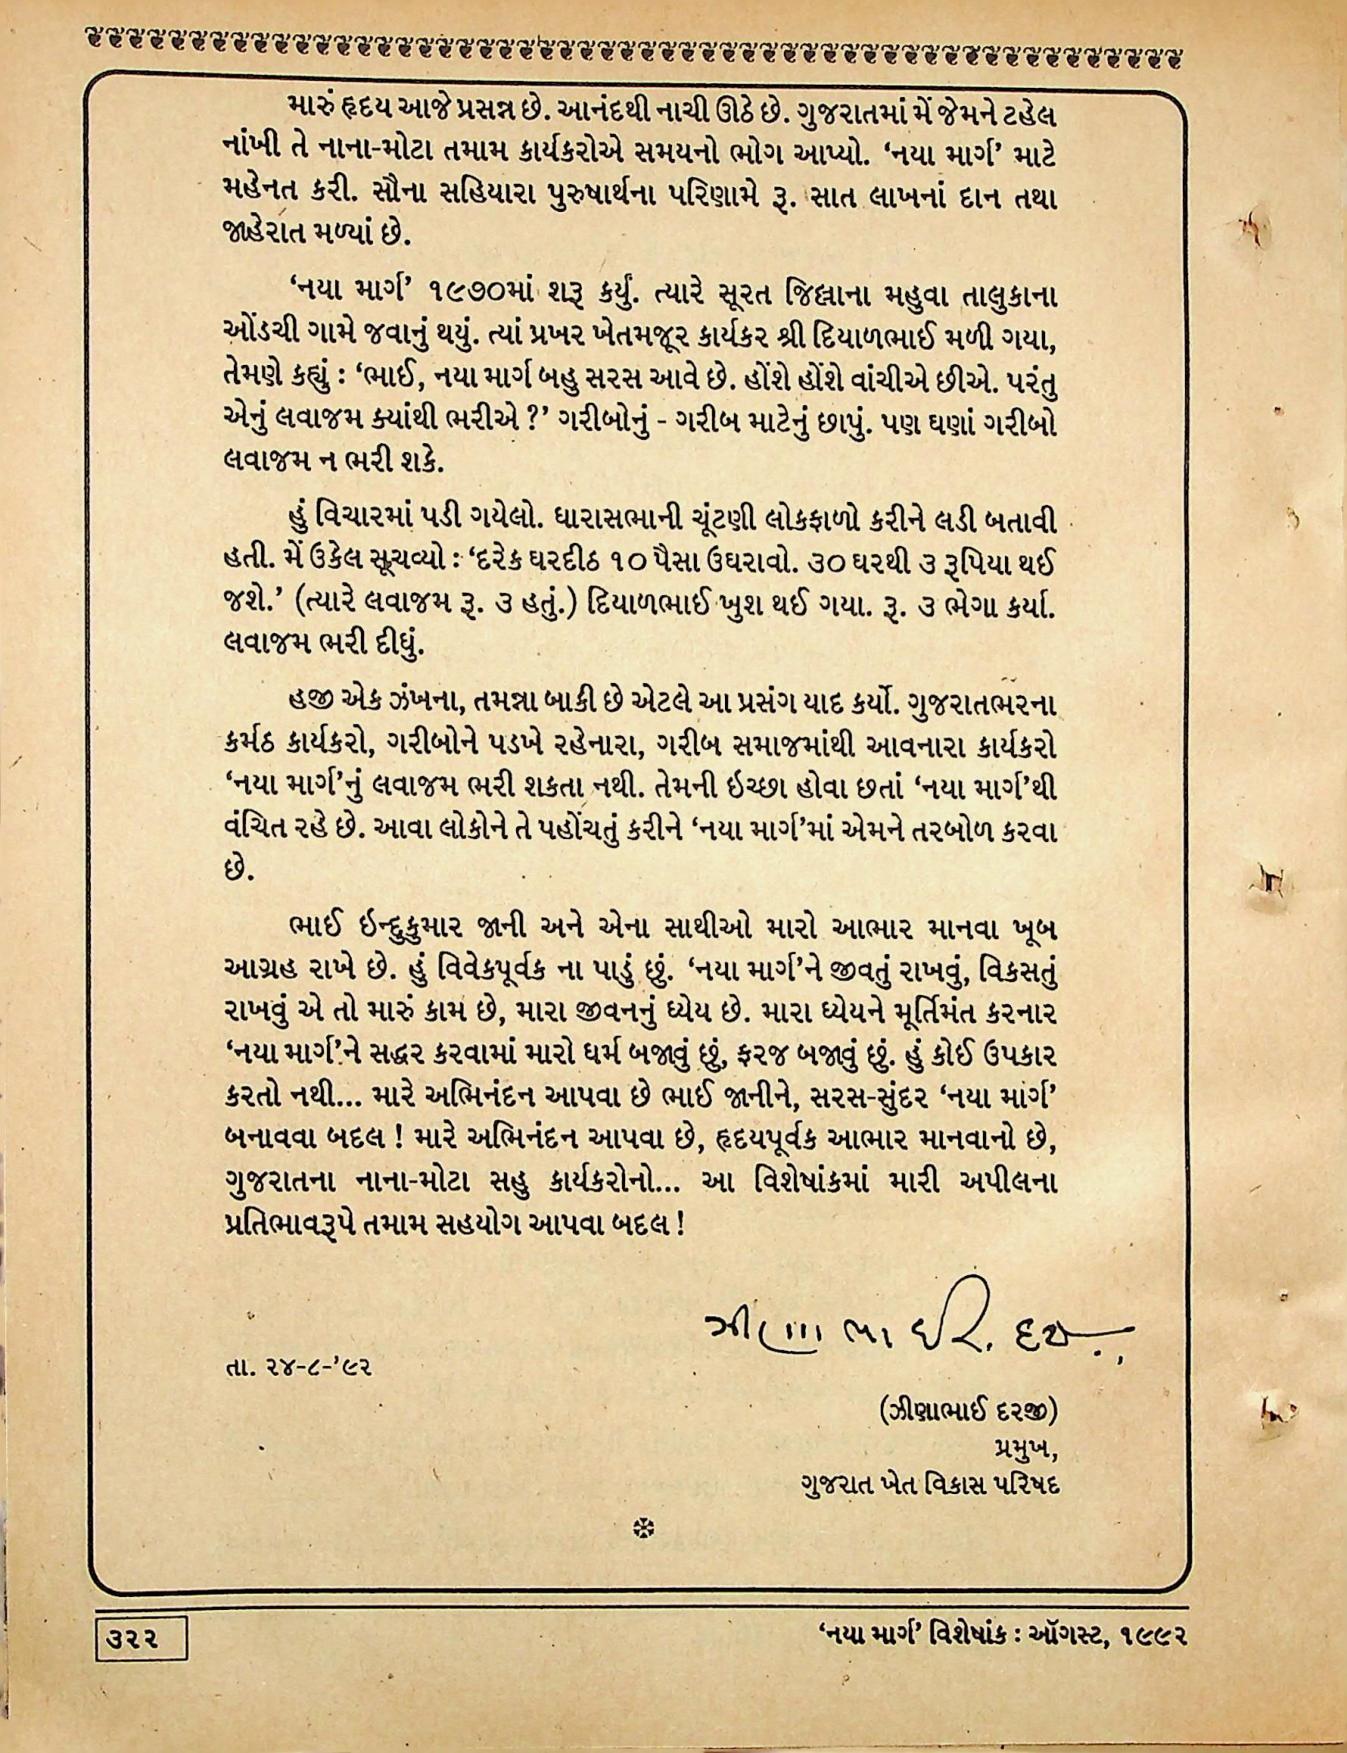 મારું હૃદય આજે પ્રસન્ન છે. આનંદથી નાચી ઊઠે છે. ગુજરાતમાં મેં જેમને ટહેલ
નાંખી તે નાના-મોટા તમામ કાર્યકરોએ સમયનો ભોગ આપ્યો. ‘નયા માર્ગ’ માટે
મહેનત કરી. સૌના સહિયારા પુરુષાર્થના પરિણામે રૂ. સાત લાખનાં દાન તથા
જાહેરાત મળ્યાં છે.
‘નયા માર્ગ’ ૧૯૭૦માં શરૂ કર્યું. ત્યારે સૂરત જિલ્લાના મહુવા તાલુકાના
ઓંડચી ગામે જવાનું થયું. ત્યાં પ્રખર ખેતમજૂર કાર્યકર શ્રી દિયાળભાઈ મળી ગયા,
તેમણે કહ્યું : ‘ભાઈ, નયા માર્ગ બહુ સરસ આવે છે. હોંશે હોંશે વાંચીએ છીએ. પરંતુ
એનું લવાજમ ક્યાંથી ભરીએ ?’ ગરીબોનું - ગરીબ માટેનું છાપું. પણ ઘણાં ગરીબો
લવાજમ ન ભરી શકે.
હું વિચારમાં પડી ગયેલો. ધારાસભાની ચૂંટણી લોકફાળો કરીને લડી બતાવી
હતી. મેં ઉકેલ સૂચવ્યો : ‘દરેક ઘરદીઠ ૧૦ પૈસા ઉઘરાવો. ૩૦ ઘરથી ૩ રૂપિયા થઈ
જશે.’ (ત્યારે લવાજમ રૂ. ૩ હતું.) દિયાળભાઈ ખુશ થઈ ગયા. રૂ. ૩ ભેગા કર્યા.
લવાજમ ભરી દીધું.
હજી એક ઝંખના, તમન્ના બાકી છે એટલે આ પ્રસંગ યાદ કર્યો. ગુજરાતભરના
કર્મઠ કાર્યકરો, ગરીબોને પડખે રહેનારા, ગરીબ સમાજમાંથી આવનારા કાર્યકરો
‘નયા માર્ગ’નું લવાજમ ભરી શકતા નથી. તેમની ઇચ્છા હોવા છતાં ‘નયા માર્ગ’થી
વંચિત રહે છે. આવા લોકોને તે પહોંચતું કરીને ‘નયા માર્ગ’માં એમને તરબોળ કરવા
છે.
ભાઈ ઇન્દુકુમાર જાની અને એના સાથીઓ મારો આભાર માનવા ખૂબ
આગ્રહ રાખે છે. હું વિવેકપૂર્વક ના પાડું છું. ‘નયા માર્ગ’ને જીવતું રાખવું, વિકસતું
રાખવું એ તો મારું કામ છે, મારા જીવનનું ધ્યેય છે. મારા ધ્યેયને મૂર્તિમંત કરનાર
‘નયા માર્ગ’ને સદ્ધર કરવામાં મારો ધર્મ બજાવું છું, ફરજ બજાવું છું. હું કોઈ ઉપકાર
કરતો નથી... મારે અભિનંદન આપવા છે ભાઈ જાનીને, સરસ-સુંદર ‘નયા માર્ગ’
બનાવવા બદલ ! મારે અભિનંદન આપવા છે, હૃદયપૂર્વક આભાર માનવાનો છે,
ગુજરાતના નાના-મોટા સહુ કાર્યકરોનો... આ વિશેષાંકમાં મારી અપીલના
પ્રતિભાવરૂપે તમામ સહયોગ આપવા બદલ !
ઝીણાભાઈ ર. દરજી
તા. ૨૪-૮-’૯૨
(ઝીણાભાઈ દરજી)
પ્રમુખ,
ગુજરાત ખેત વિકાસ પરિષદ
૩૨૨
‘નયા માર્ગ’ વિશેષાંક : ઑગસ્ટ, ૧૯૯૨